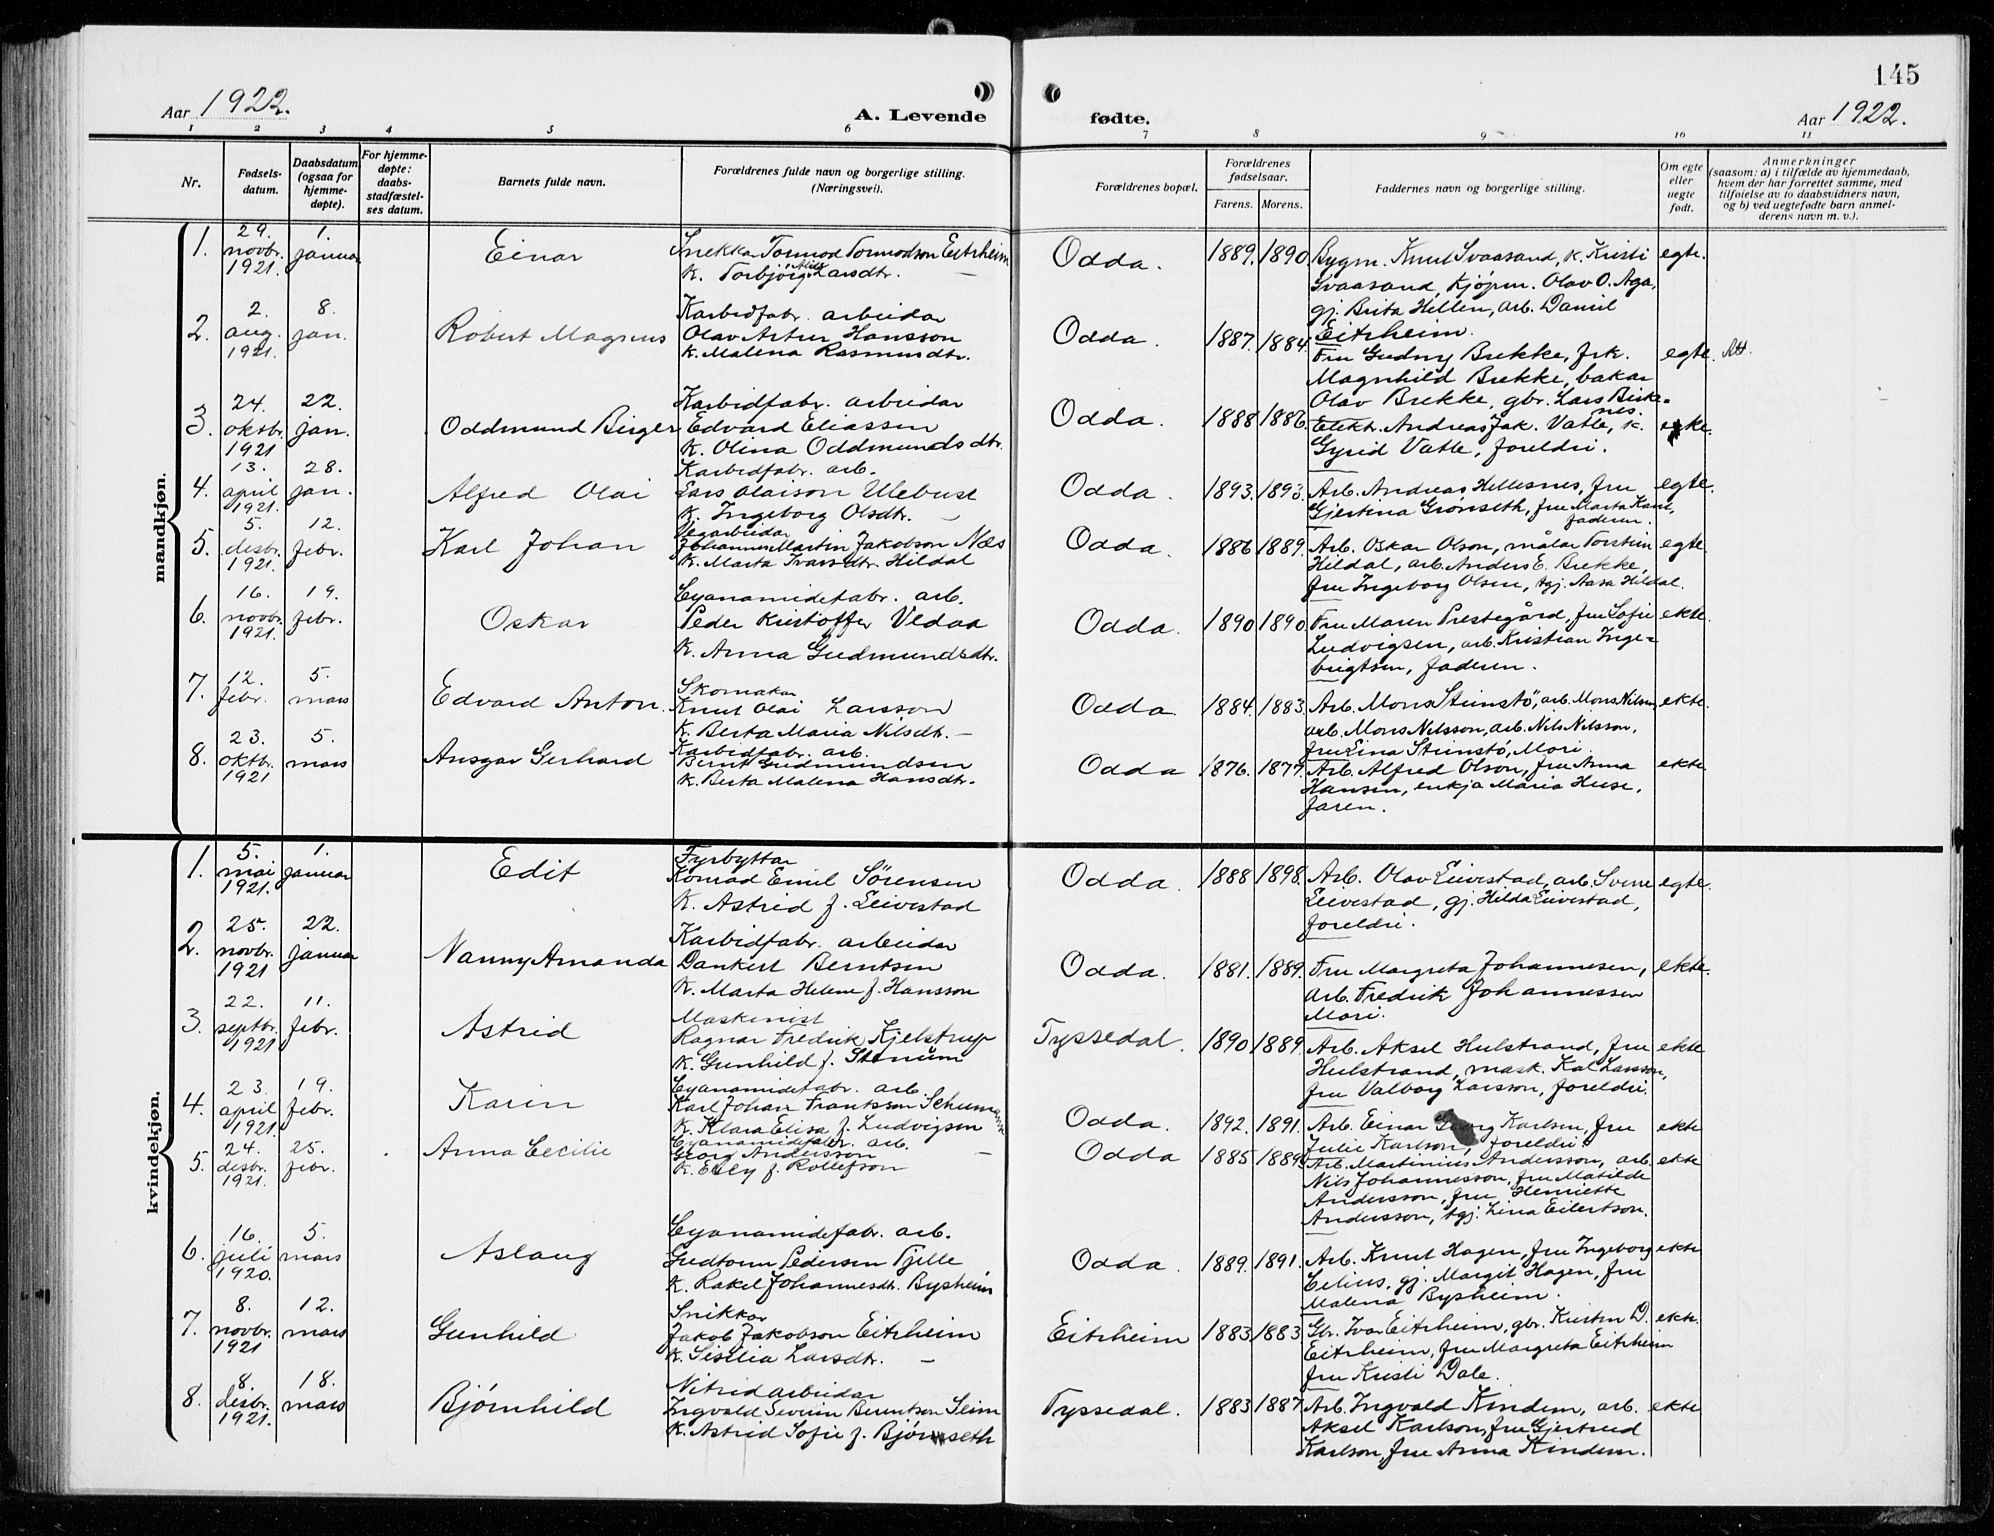 145
Aar 1922.
A. Levende fødte.
Aar 1922.
1 2 3 4 5 6 7 8 9 10 11
Nr.
Fødsels-
datum.
Daabsdatum
(ogsaa for
hjemme-
døpte).
For hjemme-
døpte:
daabs-
stadfæstel-
ses datum.
Barnets fulde navn.
Forældrenes fulde navn og borgerlige stilling.
(Næringsvei).
Forældrenes bopæl.
Forældrenes
fødselsaar.
Farens. Morens.
Faddernes navn og borgerlige stilling.
Om egte
eller
uegte
født.
Anmerkninger
(saasom: a) i tilfælde av hjemmedaab,
hvem der har forrettet samme, med
tilføielse av to daabsvidners navn,
og b) ved uegtefødte barn anmel-
derens navn m. v.).
mandkjøn.
1.
29.
novbr.
1921.
1.
januar
Einar
Snekkar Tormod Tormodson Eitrheim
k. Torbjørg Alida Larsdtr. —
Odda.
1889. 1890.
Bygm. Knut Svaasand, k. Kristi
Svaasand, kjøpm. Olav O. Aga,
gj. Brita Hillen, arb. Daniel
Eitrheim.
egte.
2.
2.
aug.
1921.
8.
jan.
Robert Magnus
Karbidfabr. arbeidar
Olav Artur Hansson
k. Malena Rasmusdtr.
Odda.
1887. 1884.
Fru Gudny Brekke, frk.
Magnhild Brekke, bakar
Olav Brekke, gbr. Lars Birke=
nes.
egte.
3.
24.
oktbr.
1921
22.
jan.
Oddmund Birger
Karbidfabr. arbeidar
Edvard Eliassen
k. Olina Oddmundsdtr.
Odda.
1888 1886.
Elektr. Andreas Jak. Vatle, k.
Gyrid Vatle, foreldri.
ekte.
4.
13.
april
1921.
28.
jan.
Alfred Olai
Karbidfabr. arb.
Lars Olaison Ulebust
k. Ingeborg Olsdtr. —
Odda.
1893. 1893.
Arb. Andreas Hellesnes, fru
Gjertina Grønseth, fru Marta Karl,
faderen.
egte.
5.
5.
desbr.
1921.
12.
febr.
Karl Johan
Vegarbeidar
Johannes Martin Jakobson Næs
k. Marta Ivarsdtr. Hildal
Odda.
1886 1889.
Arb. Oskar Olson, målar Torstein
Hildal, arb. Anders E. Brekke,
fru Ingeborg Olsen, tgj. Aasa Hildal.
egte.
6.
16.
novbr.
1921.
19.
febr.
Oskar
Cyanamidefabr. arb.
Peder Kristoffer Vedaa
k. Anna Gudmundsdtr.
Odda.
1890 1890
Fru Maren Prestegård, fru Sofie
Ludvigsen, arb. Kristian Inge=
brigtsen, faderen.
ekte.
7.
12.
febr.
5.
mars
Edvard Anton.
Skomakar
Knut Olai Larsson
k. Berta Maria Nilsdtr. —
Odda
1884. 1883.
Arb. Mons Steinstø, arb. Mons Nilsen,
arb. Mons Nilsson, arb. Nils Nilsson,
fru Eina Steinstø, Mori.
ekte.
8.
23.
oktbr.
1921
5.
mars
Ansgar Gerhard
Karbidfabr. arb.
Bernt Gudmundsen
k. Berta Malena Hansdtr.
Odda
1876. 1877.
Arb. Alfred Olson, fru Anna
Hansen, enkja Maria Huse,
faren.
ekte
kvindekjøn.
1.
5.
mai
1921.
1.
januar
Edit
Fyrbyttar
Konrad Emil Sørensen
k. Astrid f. Eivestad
Odda.
1888 1898.
Arb. Olav Eivestad, arb. Sverre
Eivestad, gj. Hilda Eivestad,
foreldri.
egte.
2.
25.
novbr.
1921
22.
januar
Nanny Amanda
Karbidfabr. arbeidar
Dankert Berntsen
k. Marta Helene f. Hansson
Odda.
1881. 1889.
Fru Margreta Johannesen,
arb. Fredrik Johannessen
Mori.
ekte.
3.
22.
septbr.
1921
11.
febr.
Astrid
Maskinist
Ragnar Fredrik Kjelstrup
k. Gunhild f. Stenum
Tyssedal.
1890 1889.
Arb. Aksel Hulstrand, fru
Hulstrand, mask. Kal Larsson,
fru Valborg Larsson, foreldri.
ekte
4.
23.
april
1921.
19.
febr.
Karin
Cyanamidefabr. arb.
Karl Johan Frantsson Schumann
k. Klara Elisa f. Ludvigsen
Odda.
1892. 1891.
Arb. Einar Georg Karlsen, fru
Julie Karlson, foreldri.
ekte
5.
24.
desbr.
1921.
25.
febr.
Anna Cecilie
Cyanamidefabr. arb.
Georg Andersson
k. Elly f. Rollefson
Odda
1885 1889.
Arb. Martinius Andersson, arb.
Nils Johannesson, fru Matilde
Andersson, fru Henriette
Andersson, tgj. Lina Eilertson.
ekte
6.
16.
juli
1920.
5.
mars
Aslaug
Cyanamidefabr. arb.
Gudtorm Pedersen Tjelle
k. Rakel Johannesdtr. Bysheim
Odda.
1889. 1891.
Arb. Knut Hagen, fru Ingeborg
Cilius, gj. Margit Hagen, fru
Malena Bysheim.
ekte
7.
8.
novbr.
1921
12.
mars
Gunhild
Snikkar
Jakob Jakobson Eitrheim
k. Sisilia Larsdtr. —
Eitrheim
1883 1883
Gbr. Ivar Eitrheim, gbr. Kristen D.
Eitrheim, fru Margreta Eitrheim
fru Kristi Dale.
ekte.
8.
8.
desbr.
1921.
18.
mars
Bjørnhild
Nitridarbeidar
Ingvald Severin Berntson Seim
k. Astrid Sofie f. Bjørnseth
Tyssedal.
1883 1887
Arb. Ingvald Kindem, arb.
Aksel Karlson, fru Gjertrud
Karlson, fru Anna Kindem.
ekte